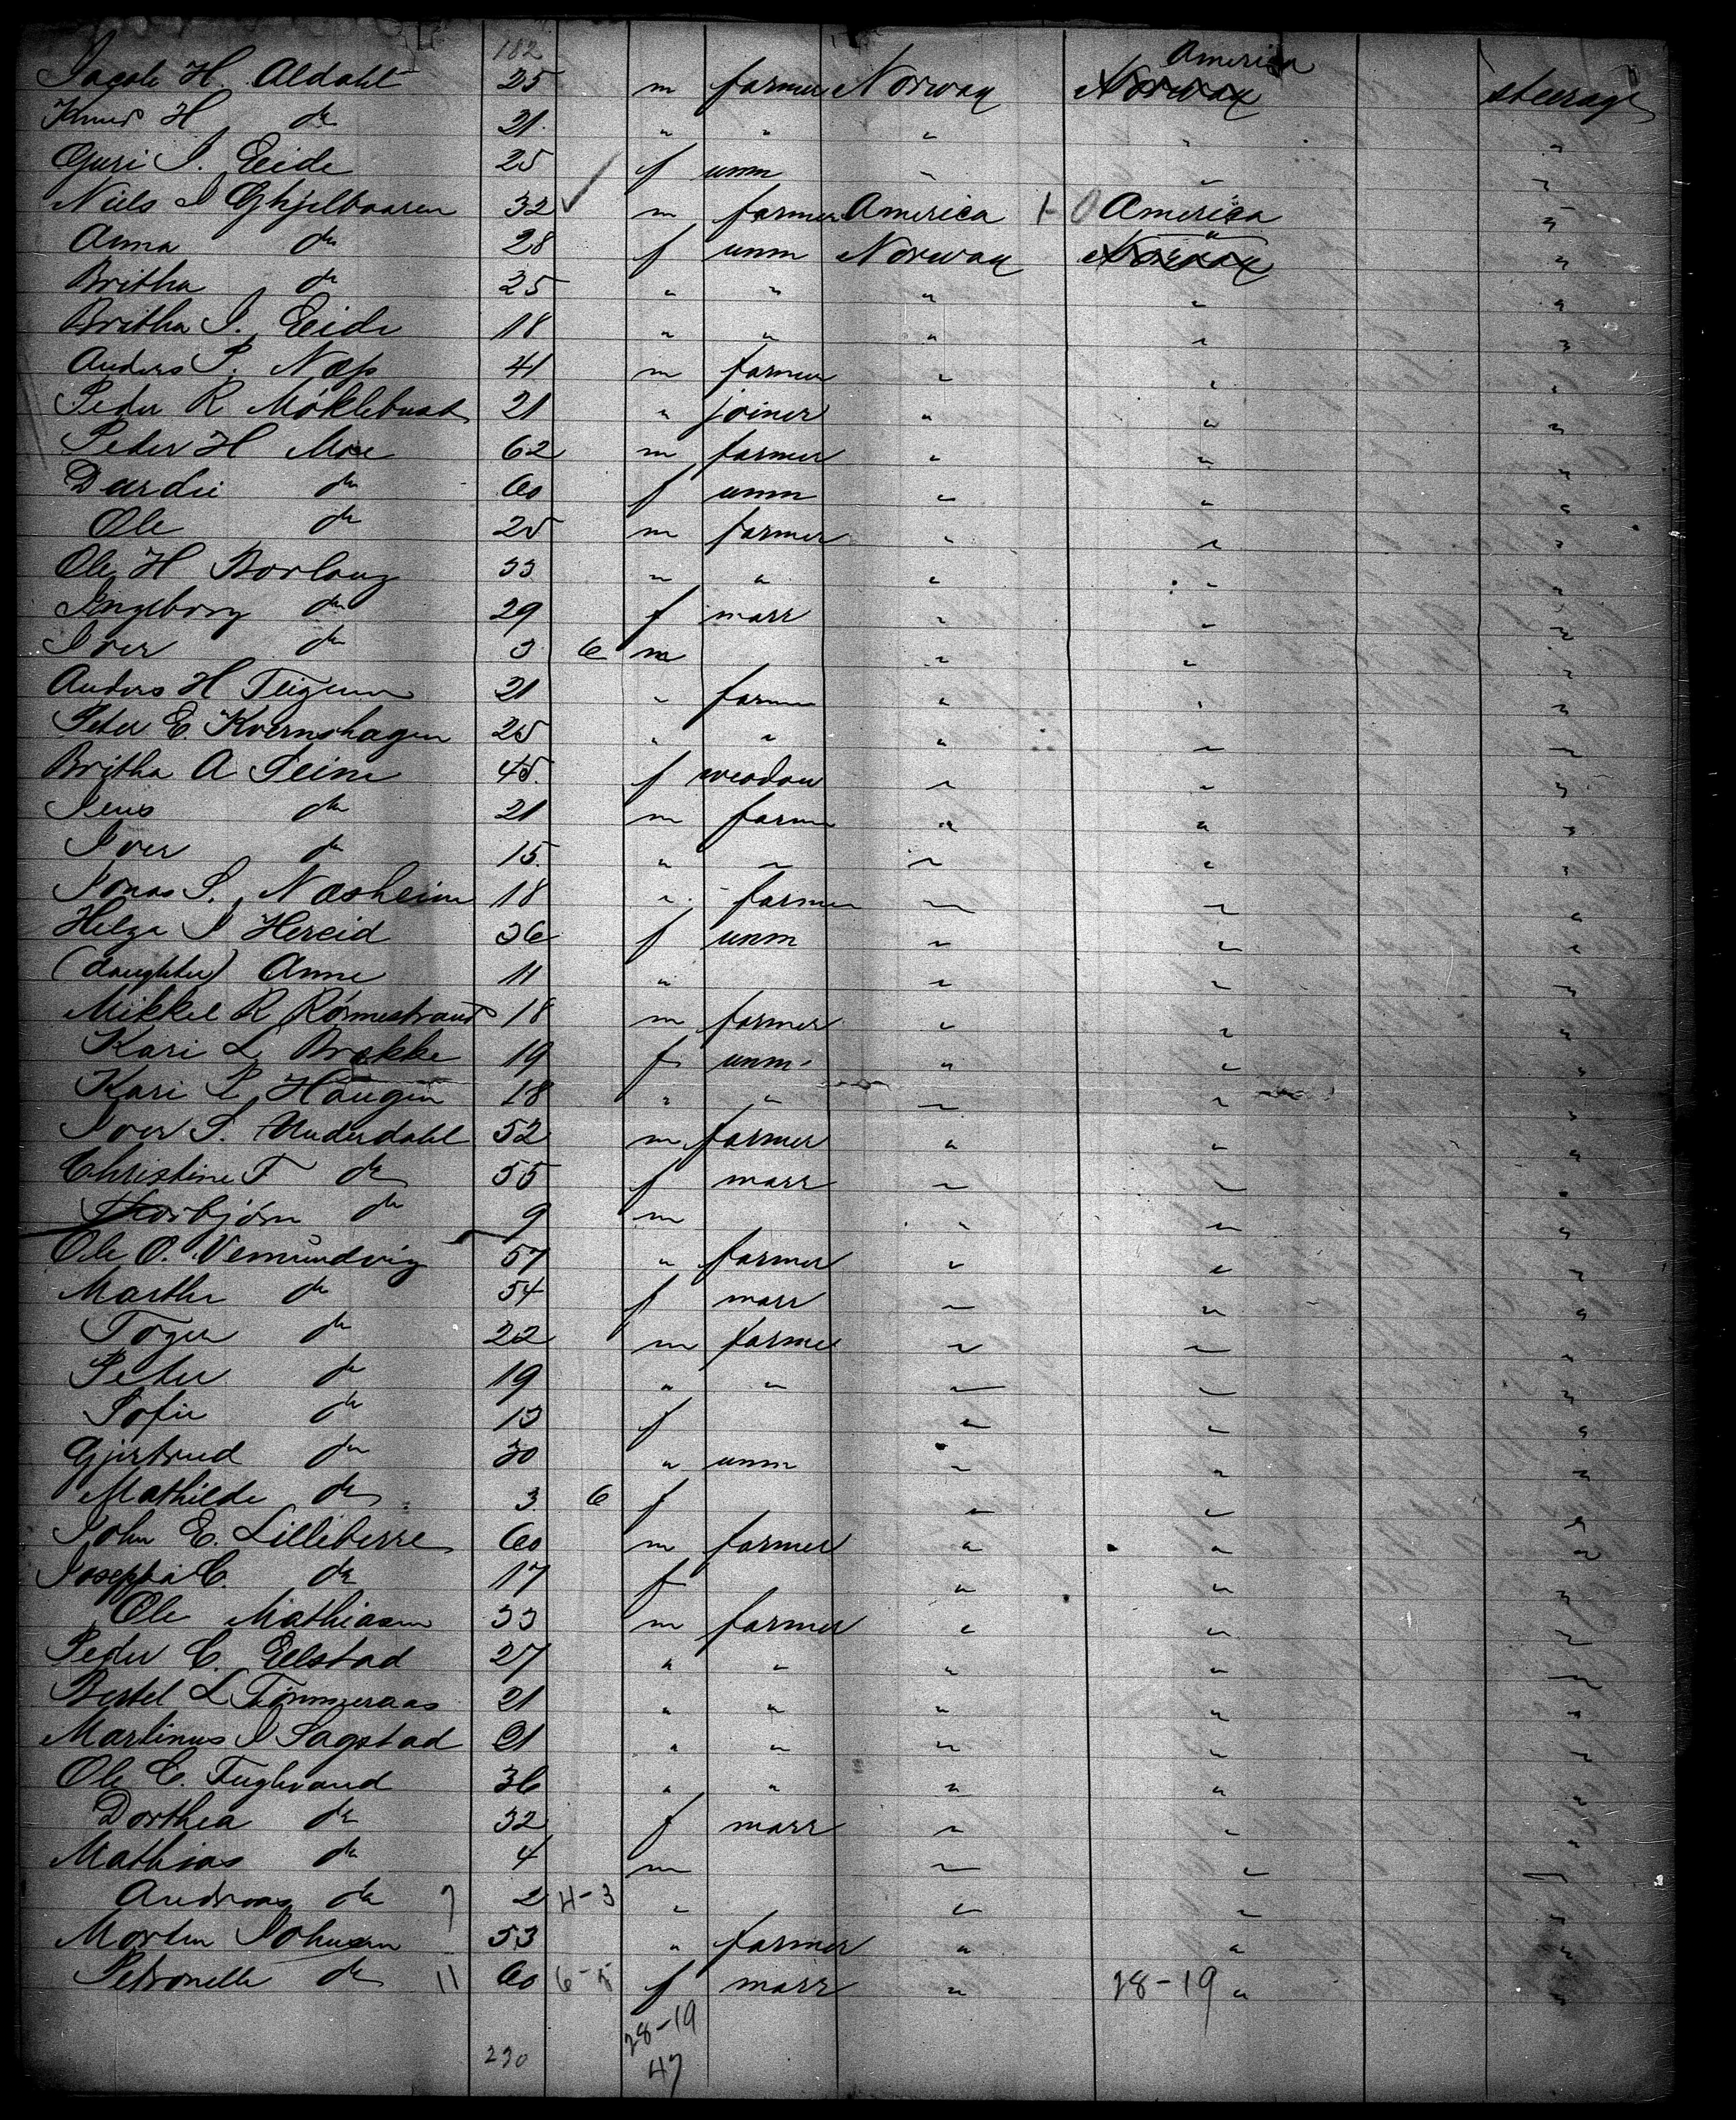 182
America
Jacob H. Aldahl 25 m farmer Norway Norway steerage
Knud H do 21 " " " " "
Guri I. Eide 25 f unm " " "
Niels I Ghjelbaaren 32 m farmer America 1-0 America "
Anna do 28 f unm Norway " Norway "
Britha do 25 " " " " "
Britha I. Eide 18 " " " " "
Anders P. Næss 41 m farmer " " "
Peder R Möklebust 21 " joiner " " "
Peder H Moe 62 m farmer " " "
Dardei do 60 f unm " " "
Ole do 25 m farmer " " "
Ole H Borlaug 33 " " " " "
Ingeborg do 29 f marr " " "
Iver do 3 6 m " " "
Anders H Teigum 21 " farmer " " "
Peter E. Kvernshagen 25 " " " " "
Britha A Seim 45 f weadow " " "
Jens do 21 m farmer " " "
Iver do 15 " " " " "
Jonas S. Næsheim 18 " farmer " " "
Helga I Hereid 36 f unm " " "
(daughter) Anne 11 " " " "
Mikkel R Römmestrand 18 m farmer " " "
Kari L Brekke 19 f unm " " "
Kari P Haugen 18 " " " " "
Iver S. Underdahl 52 m farmer " " "
Christine T do 55 f marr " " "
Thorbjörn do 9 m " " "
Ole O. Vemundvig 57 " farmer " " "
Marthe do 54 f marr " " "
Toger do 22 m farmer " " "
Peter do 19 " " " " "
Sofie do 13 f " " "
Gjertrud do 30 " unm " " "
Mathilde do 3 6 f " " "
John E. Lilleberre 60 m farmer " " "
Josepha C. do 17 f " " "
Ole Mathiasen 33 m farmer " " "
Peder C. Elstad 27 " " " " "
Bertel L Tömmeraas 21 " " " " "
Martinus I Sagstad 21 " " " " "
Ole C. Fuglvand 36 " " " " "
Dorthea do 32 f marr " " "
Mathias do 4 m " " "
Andreas do 7 2 4-3 " " " "
Morten Johnsen 53 " farmer " " "
Petronelle do 11 60 6-5 f marr " 28-19 " "
28-19
230 47